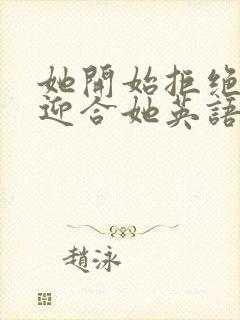 她開始拒絕
迎合她英語
趙泳